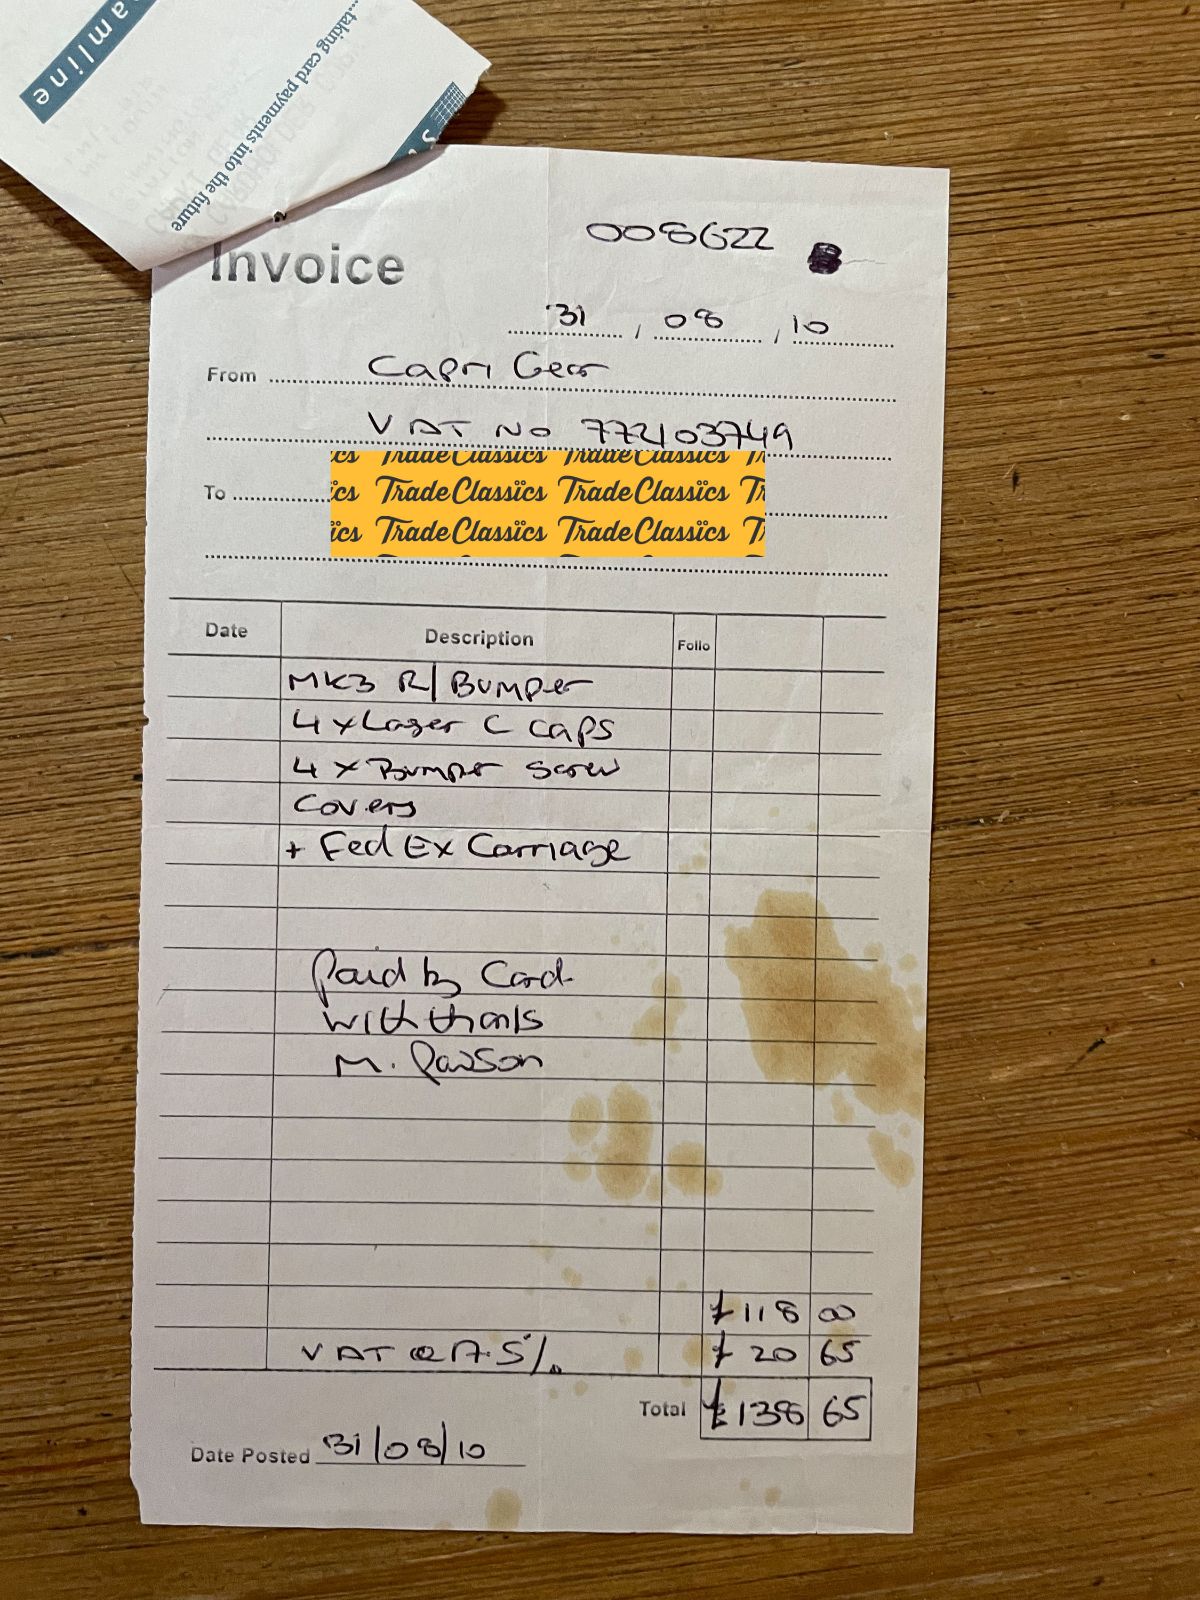 amline
...taking card payments into the future
s
Invoice
008622
31 , 08 , 10
From Capri Gear
VAT No 772103749
ics TradeClassics TradeClassics T
To
ics TradeClassics TradeClassics Tr
ics TradeClassics TradeClassics Tr
Date Description Folio
MK3 R/Bumper
4 x Laser C caps
4 x Bumper screw
covers
+ FedEx Carriage
Paid by Card
with thanks
M. Pawson
£118 00
VAT @ 17.5%. £ 20 65
Total £138 65
Date Posted 31/08/10